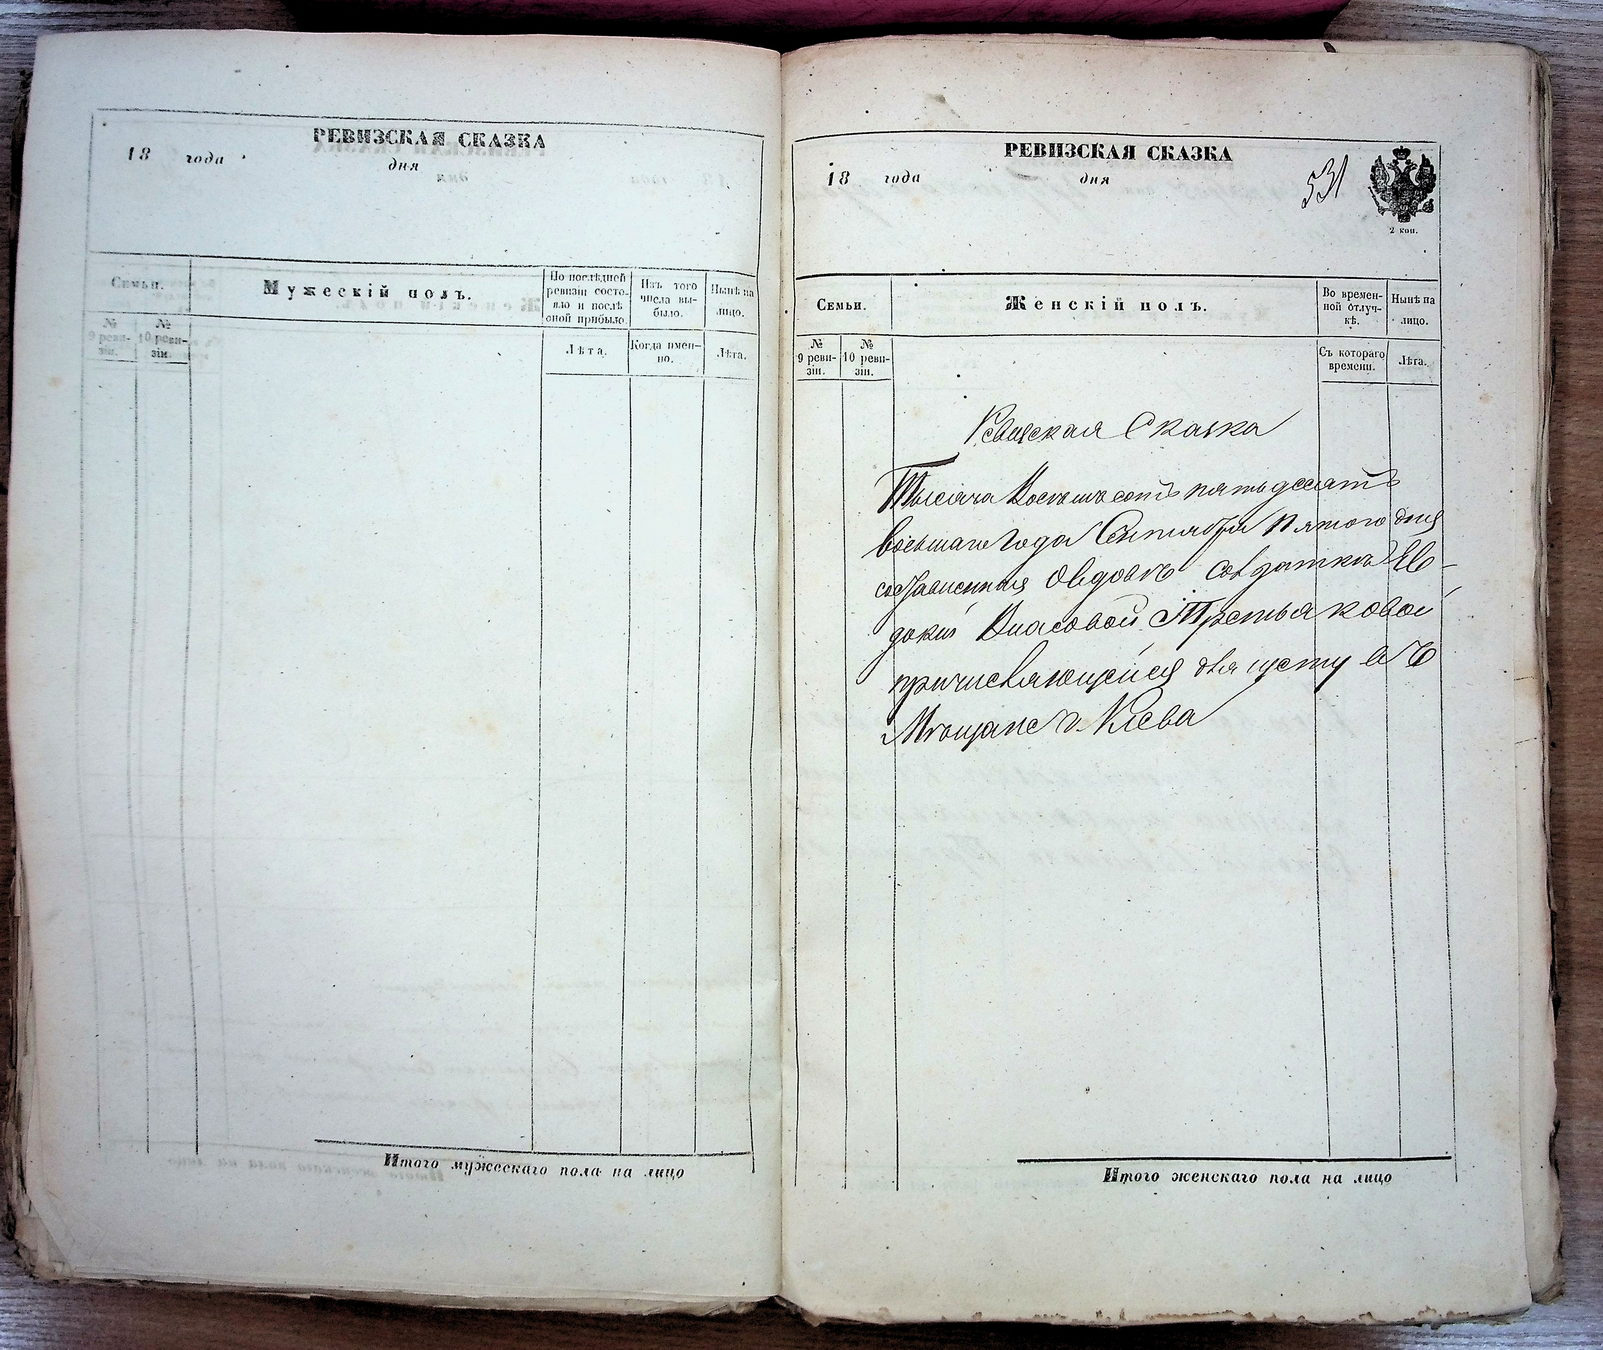 РЕВИЗСКАЯ СКАЗКА
18 года дня
Семьи.
№ 9 ревизіи.
№ 10 ревизіи.
Мужескій полъ.
По послѣдней ревизіи состояло и послѣ оной прибыло.
Лѣта.
Изъ того числа выбыло.
Когда именно.
Нынѣ на лицо.
Лѣта.
Итого мужескаго пола на лицо
РЕВИЗСКАЯ СКАЗКА
18 года дня
531
2 коп.
Семьи.
№ 9 ревизіи.
№ 10 ревизіи.
Женскій полъ.
Во временной отлучкѣ.
Съ котораго времени.
Нынѣ на лицо.
Лѣта.
Ревизская Сказка
Тысяча Восемьсотъ пятьдесятъ
восьмаго года Сентября пятого дня
о вдовѣ солдаткѣ Ев-
докіи Власовой Третьяковой
причисляющейся для счету въ
Мѣщане г. Кіева
Итого женскаго пола на лицо